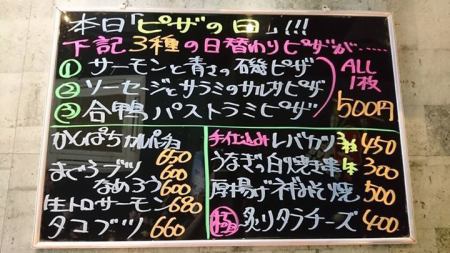 本日「ピザの日」!!!
下記3種の日替わりピザが......
① サーモンと青さの磯ピザ
② ソーセージとサラミのサルサピザ
③ 合鴨パストラミピザ
ALL
1枚
500円
かんぱちカルパッチョ
650
まぐろブツ 600
なめろう 600
生トロサーモン 680
タコブツ 660
手仕込みレバカツ 450
うなぎの白焼き串 1本 300
厚揚げネギ味噌焼 500
炙りタラチーズ 400